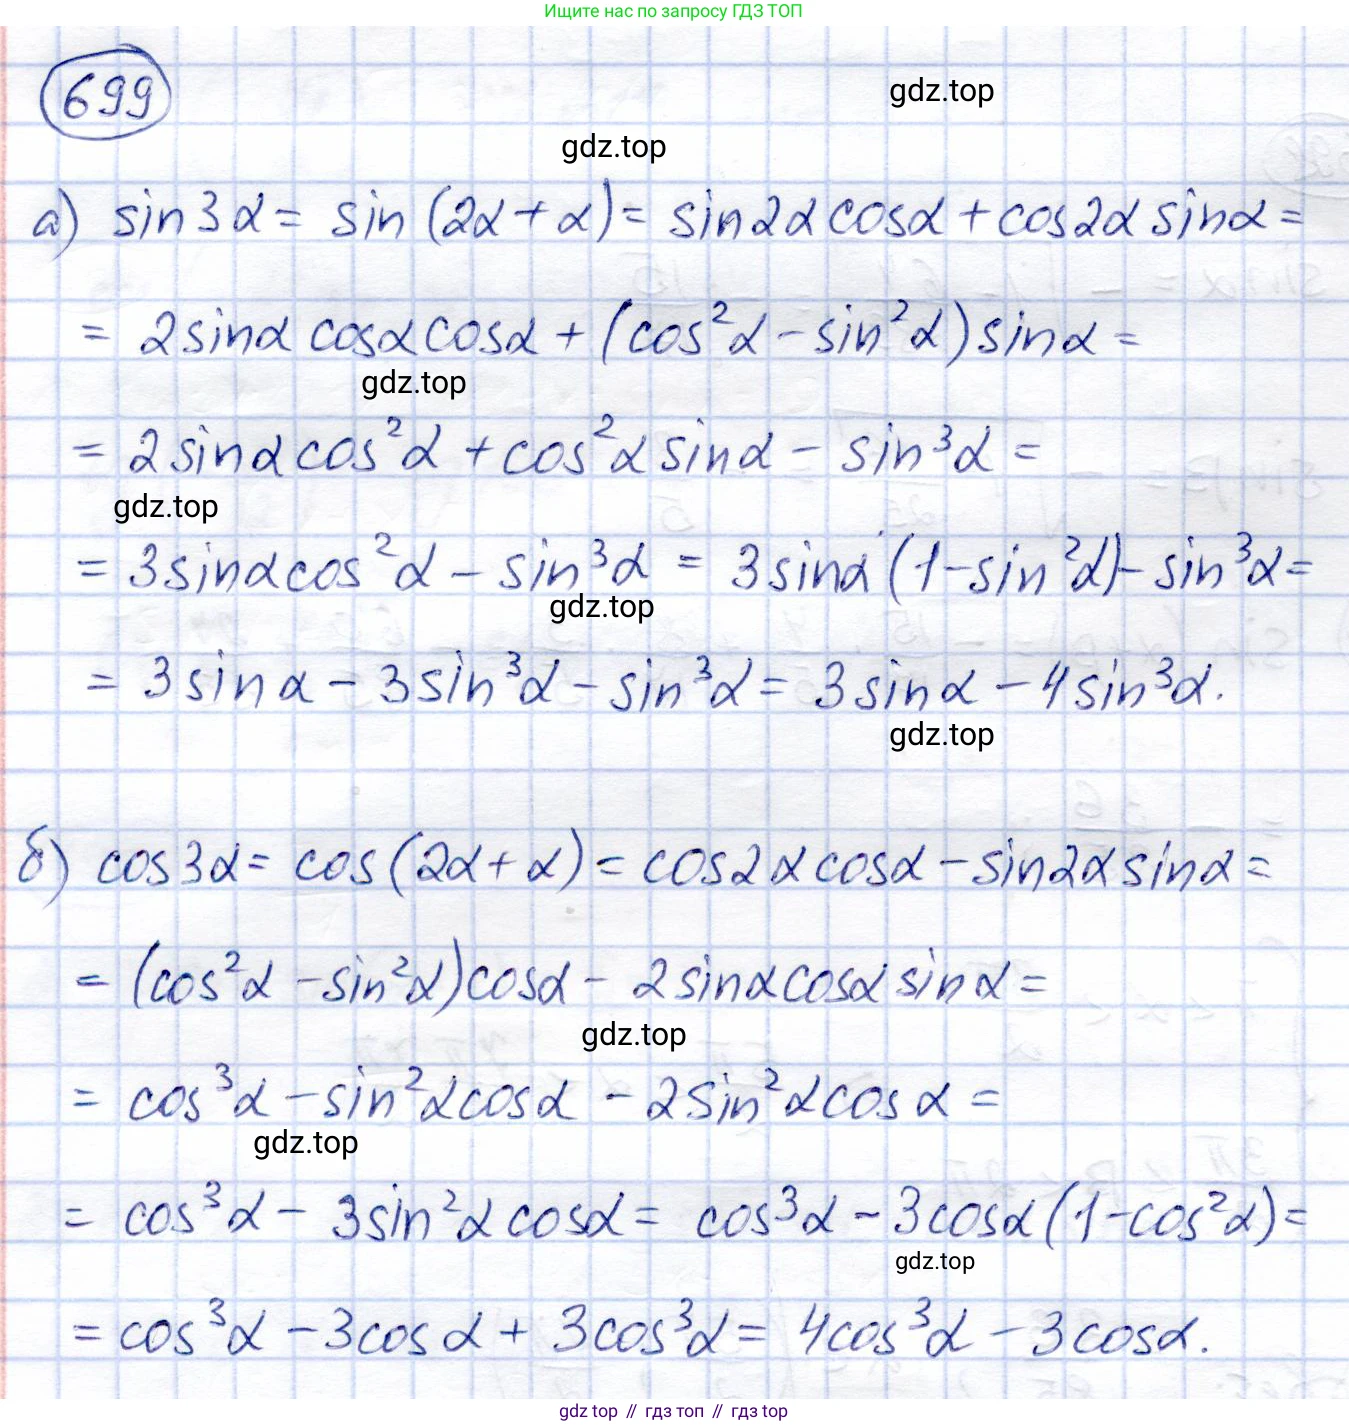 Ищите нас по запросу ГДЗ ТОП
699
gdz.top
gdz.top
а) sin3α = sin(2α+α) = sin2α cosα + cos2α sinα =
= 2sinα cosα cosα + (cos²α - sin²α) sinα =
gdz.top
= 2sinα cos²α + cos²α sinα - sin³α =
gdz.top
= 3sinα cos²α - sin³α = 3sinα (1-sin²α) - sin³α =
gdz.top
= 3sinα - 3sin³α - sin³α = 3sinα - 4sin³α.
gdz.top
б) cos3α = cos(2α+α) = cos2α cosα - sin2α sinα =
= (cos²α - sin²α) cosα - 2sinα cosα sinα =
gdz.top
= cos³α - sin²α cosα - 2sin²α cosα =
gdz.top
= cos³α - 3sin²α cosα = cos³α - 3cosα (1-cos²α) =
gdz.top
= cos³α - 3cosα + 3cos³α = 4cos³α - 3cosα.
gdz top // гдз топ // гдз top